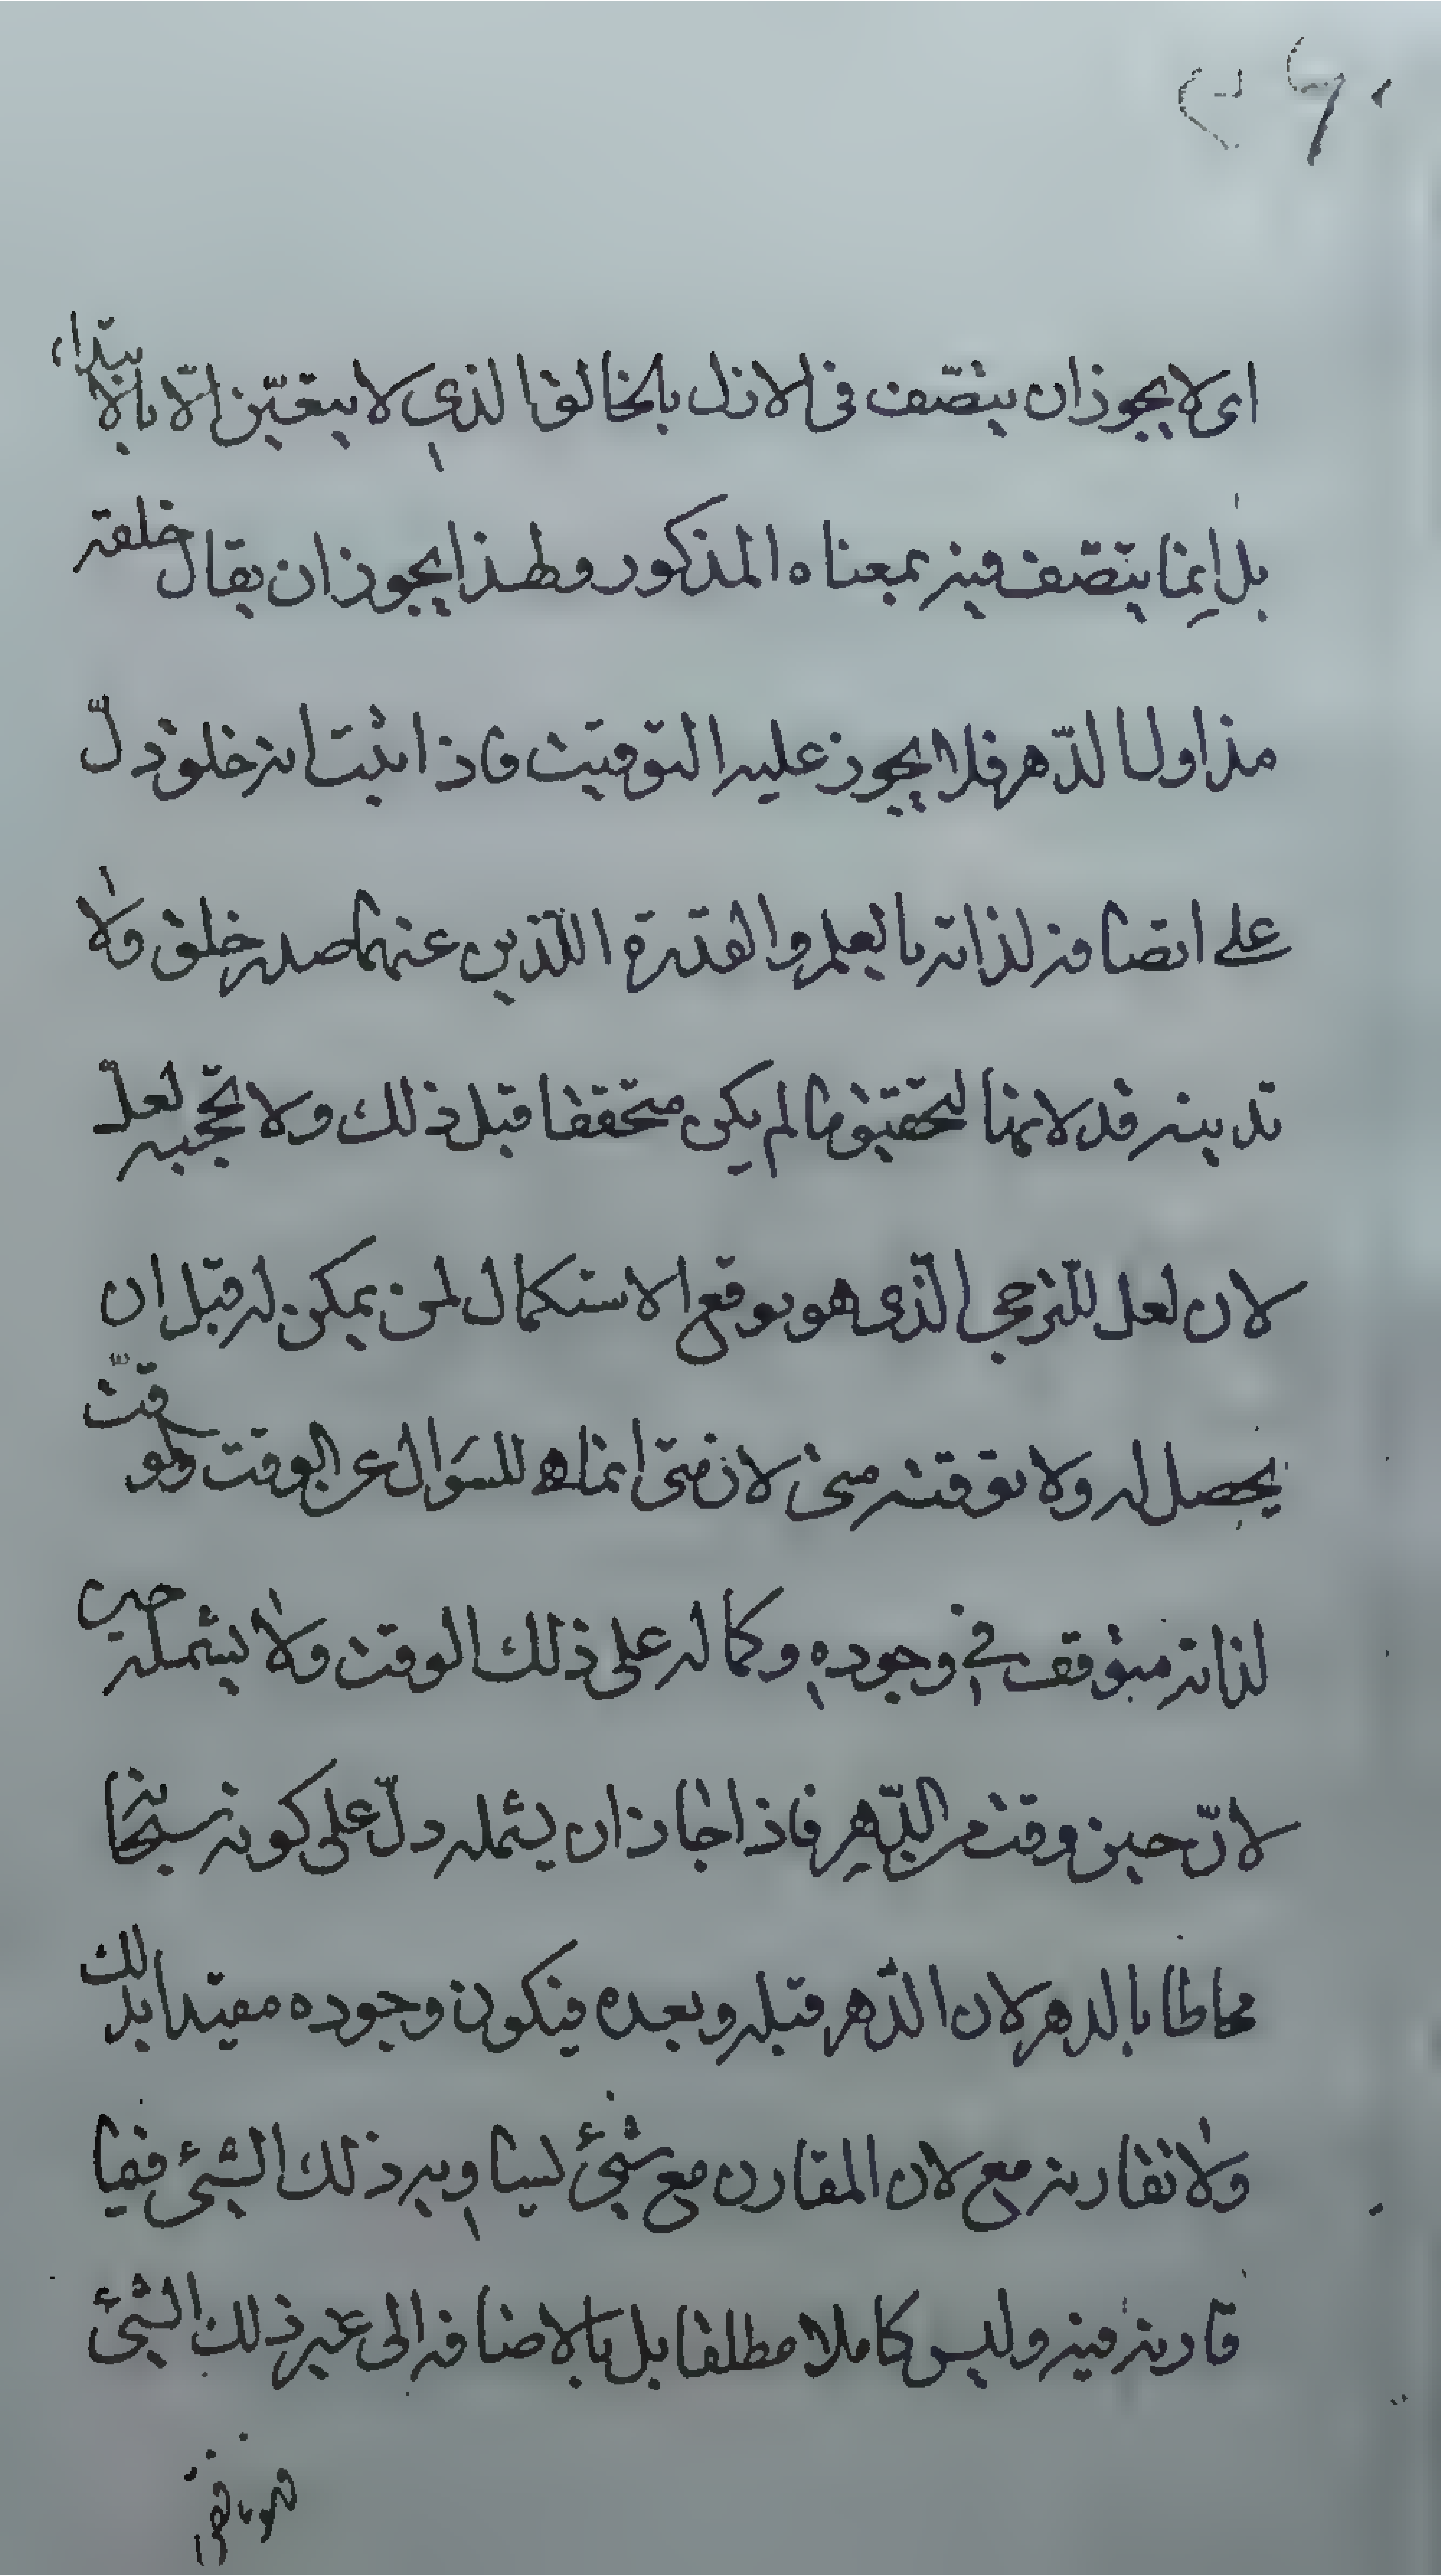 اى لا يجوز ان يتصف فى الازل بالخالق الذي لا يتعيّن الّا بالابتداء
بل إنما يتصف فيه بمعناه المذكور ولهذا يجوز ان يقال خلقته
مذ اول الدّهر فلا يجوز عليه التوقيت فاذا ثبت انه خلق دلّ
على اتصافه لذاته بالعلم والقدرة اللّذين عنهما صدر خلق ولا
تدينه قد لانها لتحقيق ما لم يكن متحققا قبل ذلك ولا تحجبه لعلّ
لان لعل للترجي الّذى هو توقع الاستكمال لمن يمكن له قبل ان
يحصل له ولا توقته متى لان متى انما هو للسؤال عن الوقت ولو وقّت
لذاته متوقف في وجوده وكماله على ذلك الوقت ولا يشمله حين
لانّ حين وقت من الدّهر فاذا جاز ان يشمله دلّ على كونه سبحانه
محاطا بالدهر لان الدّهر قبله وبعده فيكون وجوده مقيدا بذلك
ولا تقارنه مع لان المقارن مع شيئ يساويه ذلك الشيئ فيما
قارنه فيه وليس كاملا مطلقا بل بالاضافه الى غير ذلك الشيئ
فهو ناقص